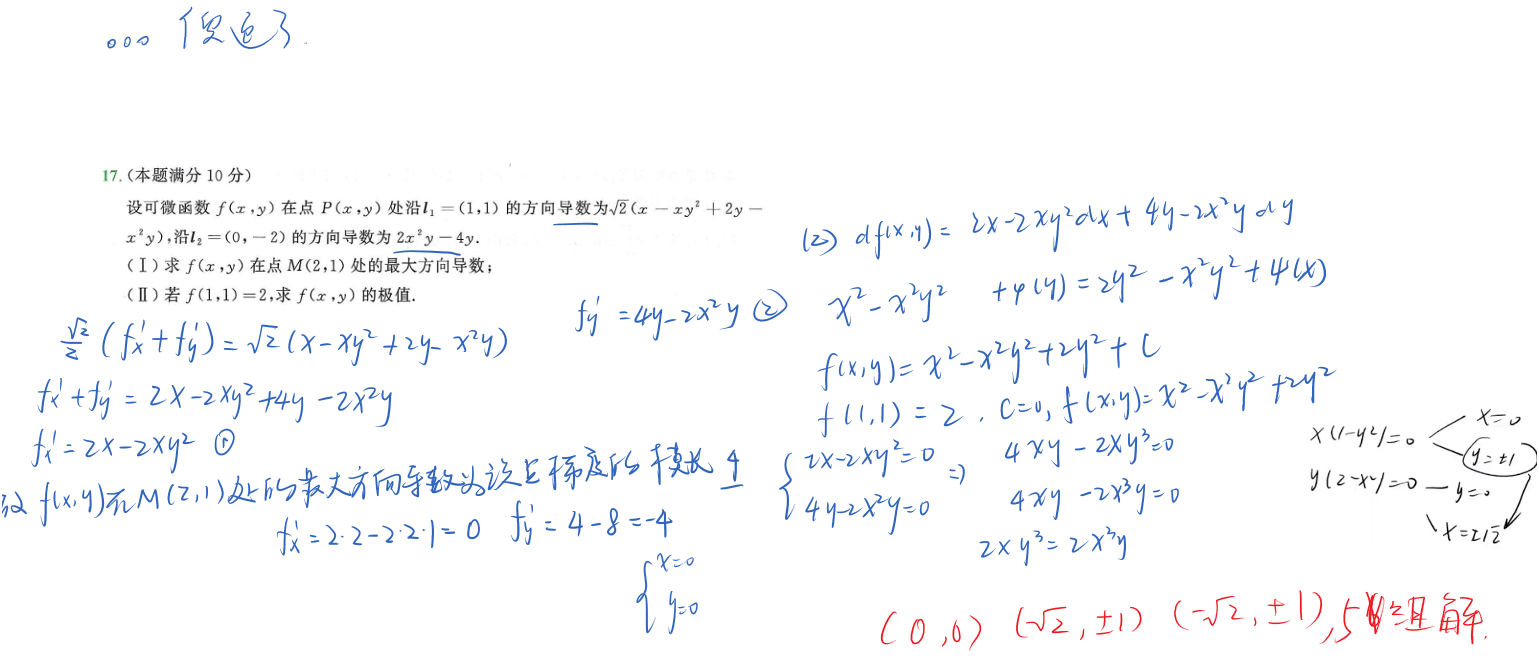 ... 傻逼了
17.(本题满分 10 分)
设可微函数 f(x,y) 在点 P(x,y) 处沿 l₁=(1,1) 的方向导数为√2(x-xy²+2y-
x²y),沿 l₂=(0,-2) 的方向导数为 2x²y-4y.
(Ⅰ)求 f(x,y) 在点 M(2,1) 处的最大方向导数;
(Ⅱ)若 f(1,1)=2,求 f(x,y) 的极值.
√2/2 (fx'+fy')=√2(x-xy²+2y-x²y)
fx'+fy'=2x-2xy²+4y-2x²y
fx'=2x-2xy² ①
fy'=4y-2x²y ②
故 f(x,y)在M(2,1)处的最大方向导数为该点梯度的模长 4
fx'=2·2-2·2·1=0 fy'=4-8=-4
{x=0
y=0
(2) df(x,y)=2x-2xy²dx+4y-2x²ydy
x²-x²y² +φ(y)=2y²-x²y²+ψ(x)
f(x,y)=x²-x²y²+2y²+C
f(1,1)=2, C=0, f(x,y)=x²-x²y²+2y²
{2x-2xy²=0 ⇒ 4xy-2xy³=0
4y-2x²y=0 4xy-2x³y=0
2xy³=2x³y
x(1-y²)=0 x=0
y=±1
y(2-x²)=0 — y=0
x=±√2
(0,0) (√2,±1) (-√2,±1),5组解.